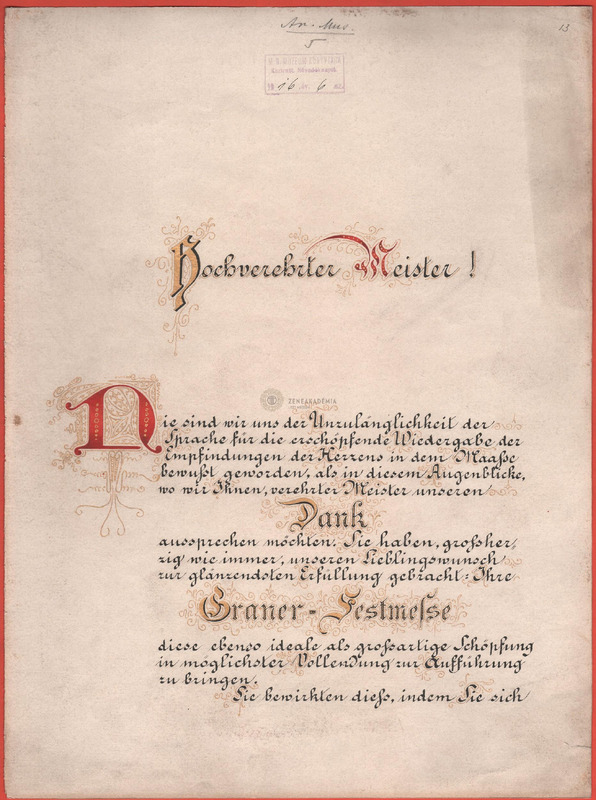 An. Mus.
5
13
Hochverehrter Meister !
ZENEAKADÉMIA
Nie sind wir uns der Unzulänglichkeit der
Sprache für die erschöpfende Wiedergabe der
Empfindungen der Herzens in dem Maaße
bewußt geworden, als in diesem Augenblicke,
wo wir Ihnen, verehrter Meister unseren
Dank
aussprechen möchten. Sie haben, großher,
zig wie immer, unseren Lieblingswunsch
zur glänzendsten Erfüllung gebracht: Ihre
Graner - Festmesse
diese ebenso ideale als großartige Schöpfung
in möglichster Vollendung zur Aufführung
zu bringen.
Sie bewirkten dieß, indem Sie sich